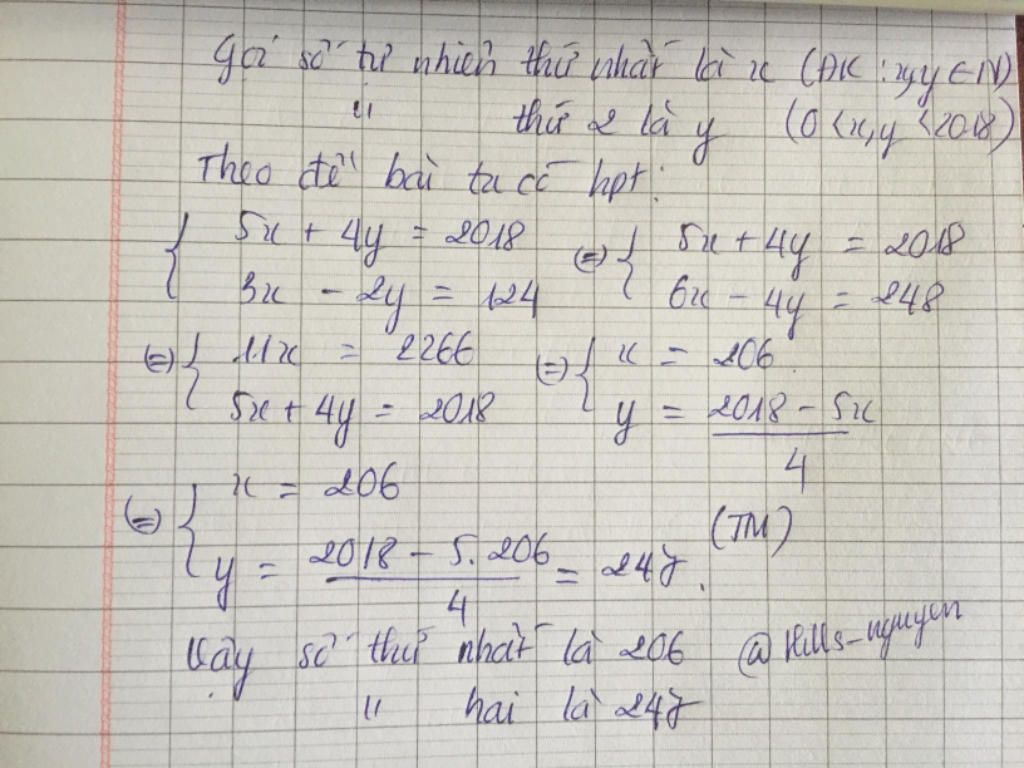 Gọi số tự nhiên thứ nhất là x (ĐK: x,y ∈ N)
" thứ 2 là y (0 < x,y < 2018)
Theo đề bài ta có hpt:
{ 5x + 4y = 2018 (=) { 5x + 4y = 2018
3x - 2y = 124 6x - 4y = 248
(=) { 11x = 2266 (=) { x = 206
5x + 4y = 2018 y = (2018 - 5x)/4
(=) { x = 206
y = (2018 - 5.206)/4 = 247. (TM)
Vậy số thứ nhất là 206 @Hills-nguyen
" hai là 247